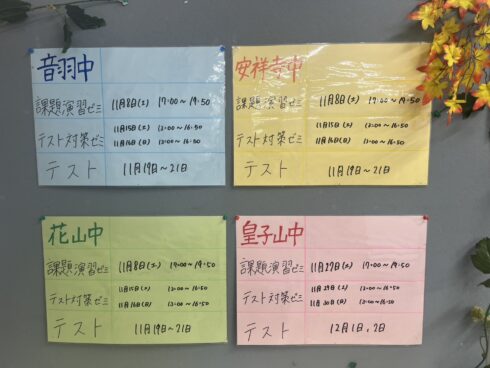 音羽中
課題演習ゼミ 11月8日(土) 17:00～19:50
テスト対策ゼミ 11月15日(土) 13:00～16:50
11月16日(日) 13:00～16:50
テスト 11月19日～21日
安祥寺中
課題演習ゼミ 11月8日(土) 17:00～19:50
テスト対策ゼミ 11月15日(土) 13:00～16:50
11月16日(日) 13:00～16:50
テスト 11月19日～21日
花山中
課題演習ゼミ 11月8日(土) 17:00～19:50
テスト対策ゼミ 11月15日(土) 13:00～16:50
11月16日(日) 13:00～16:50
テスト 11月19日～21日
皇子山中
課題演習ゼミ 17:00～19:50
テスト対策ゼミ 11月29日(土) 13:00～16:50
11月30日(日) 13:00～16:50
テスト 12月1日,2日